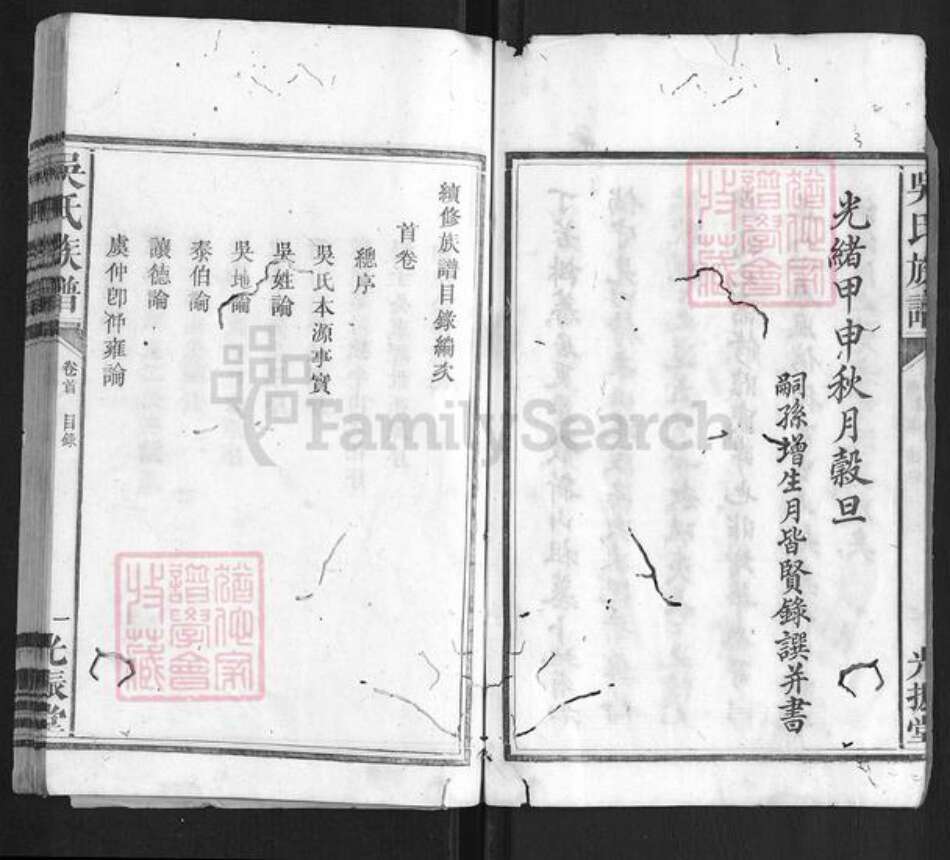 吳氏族譜
光振堂
光緒甲申秋月穀旦
嗣孫增生月皆賢錄譔并書
續修族譜目錄編次
首卷
總序
吳氏本源事實
吳姓論
吳地論
泰伯論
讓德論
虞仲卽仲雍論
吳氏族譜
卷首 目錄
一
光振堂
譜學會
收藏
譜學會
收藏
FamilySearch